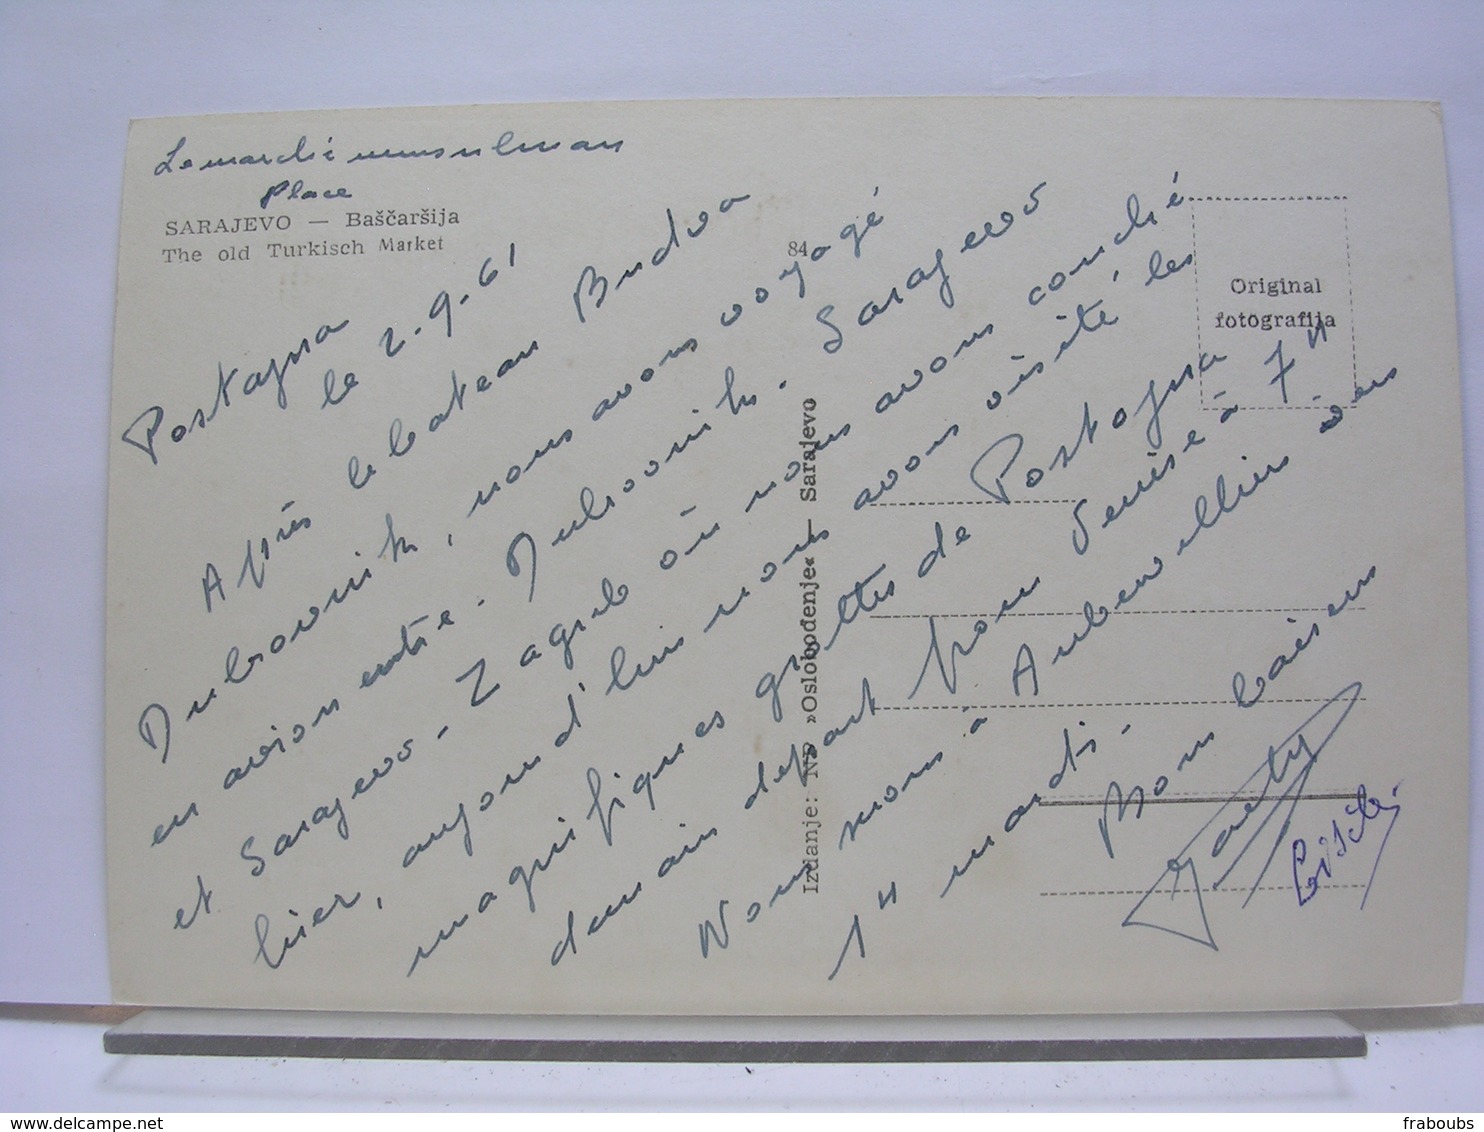 Le marché musulman
Place
SARAJEVO — Baščaršija
The old Turkisch Market
84
Original
fotografija
Izdanje: NP »Oslobođenje« — Sarajevo
Postojna
le 2-9-61
Après le bateau Budva
Dubrovnik, nous avons voyagé
en avion entre. Dubrovnik. Sarajevo
et Sarajevo. Zagreb où nous avons couché
hier, aujourd'hui nous avons visité les
magnifiques grottes de Postojna
demain départ pour Venise à 7H
Nous serons à Aubervilliers vers
1H mardi.
Bons baisers
delcampe.net
fraboubs